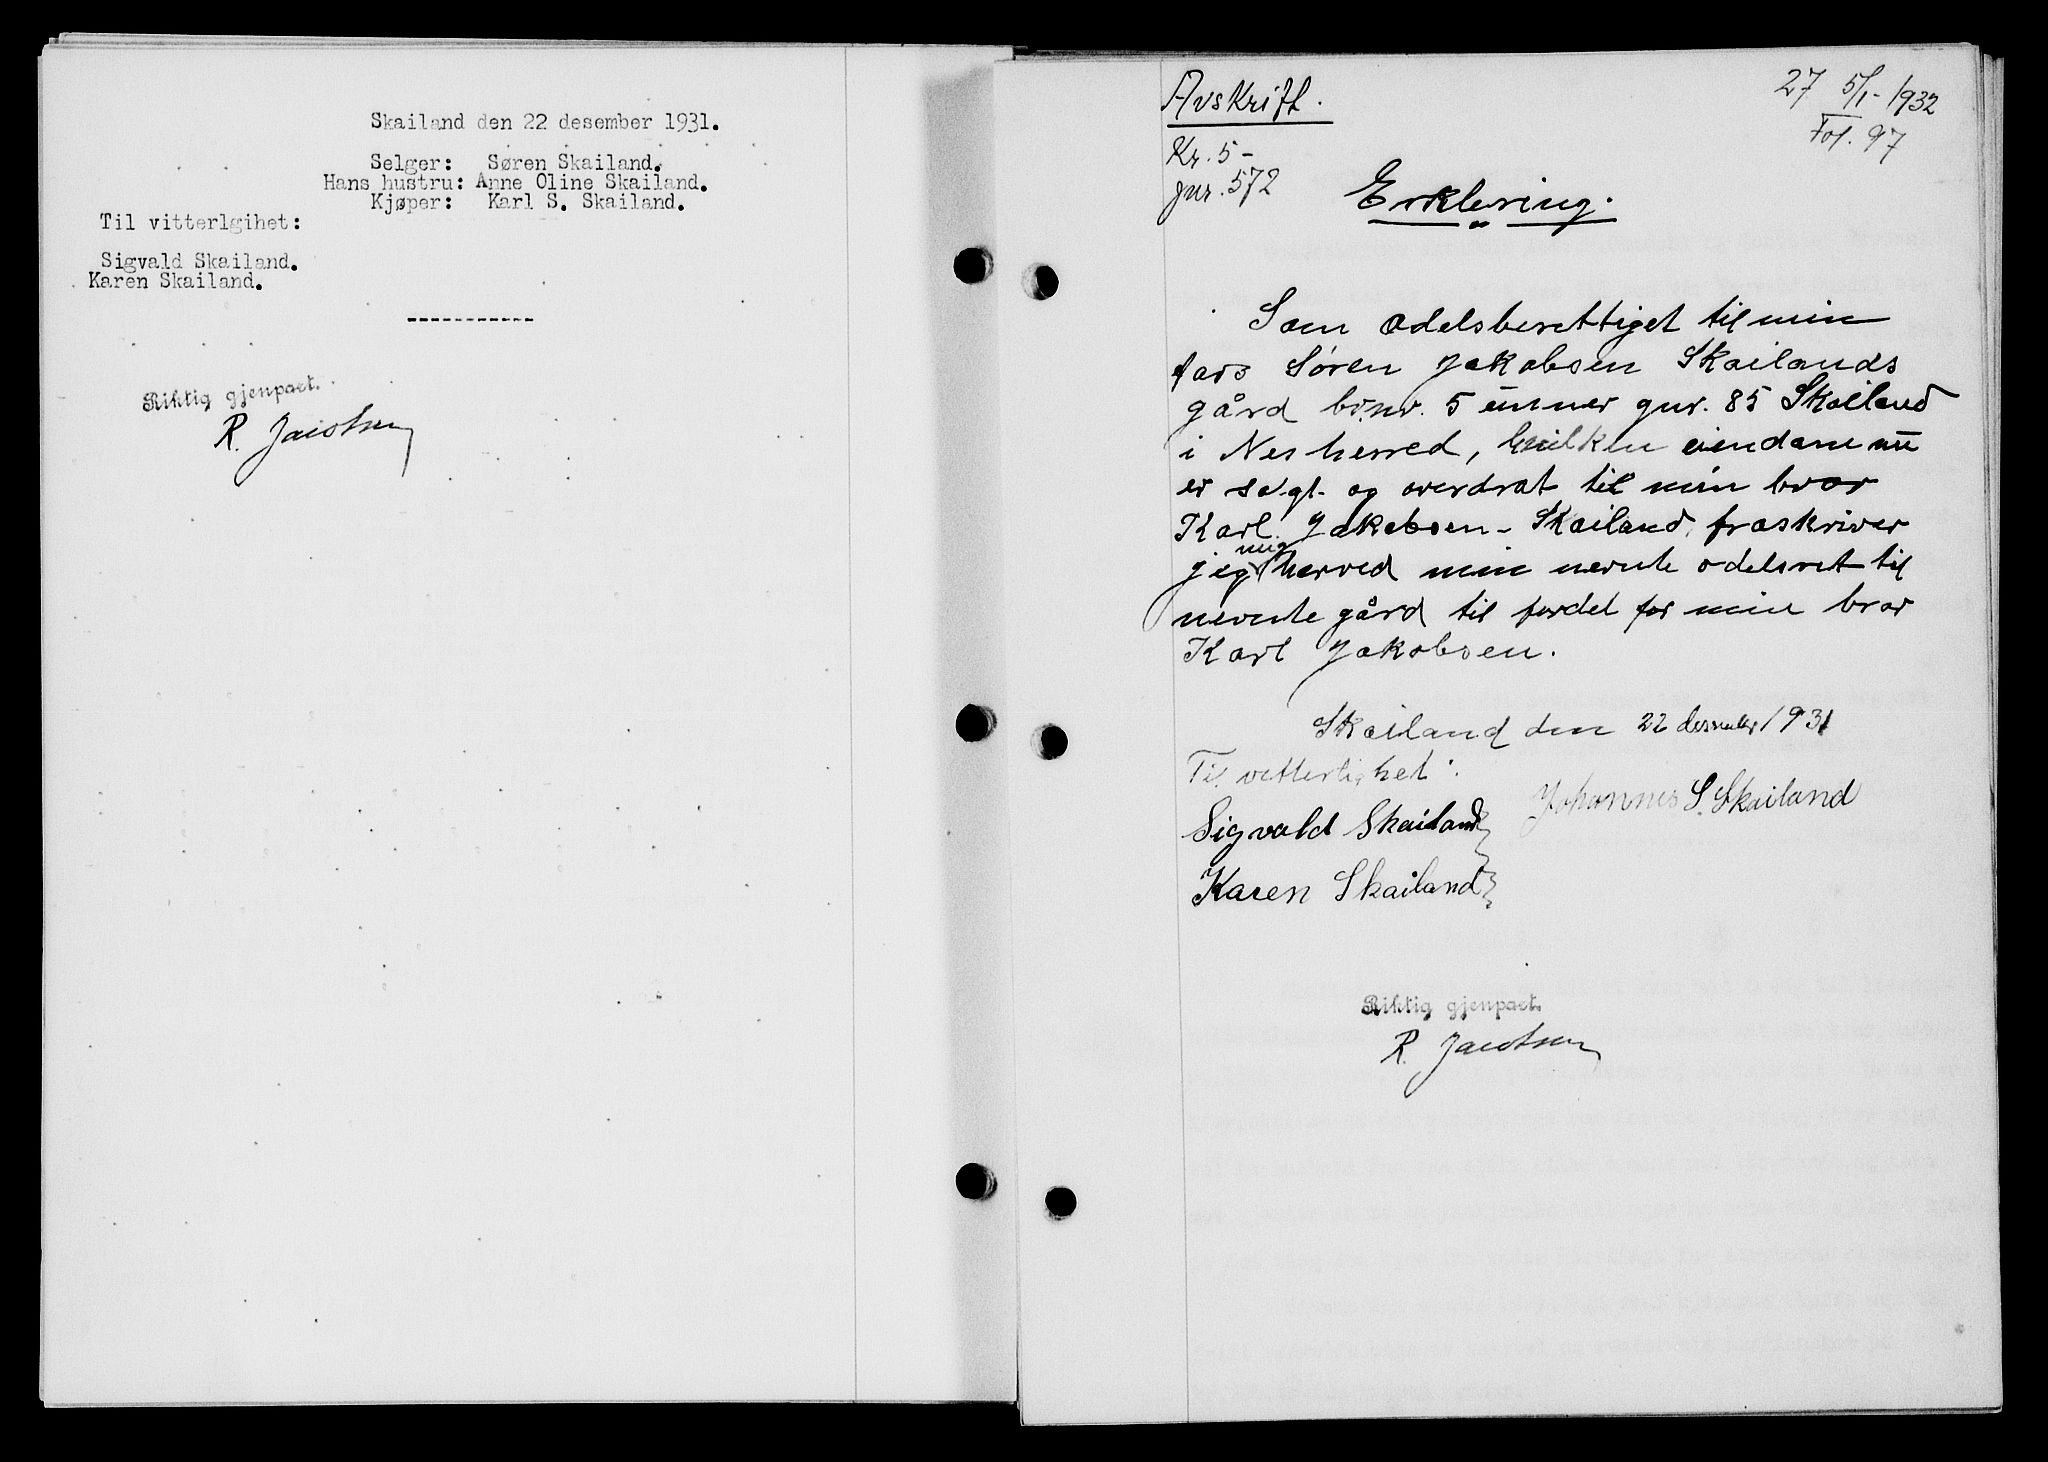 Skailand den 22 desember 1931.
Selger: Søren Skailand.
Hans hustru: Anne Oline Skailand.
Kjøper: Karl S. Skailand.
Til vitterlgihet:
Sigvald Skailand.
Karen Skailand.
-----------
Riktig gjenpart.
R. Jacobsen
Avskrift.
27 5/1-1932
Fol. 97
Kr. 5-
Jnr. 572
Erklering.
Som odelsberettiget til min
fars Søren Jakobsen Skailands
gård brnr. 5 unner gnr. 85 Skailand
i Nes herred, hvilken eiendom nu
er solgt og overdrat til min bror
Karl Jakobsen-Skailand, fraskriver
jeg mig herved min nevnte odelsret til
nevnte gård til fordel for min bror
Karl Jakobsen.
Skailand den 22 desember 1931
Til vitterlighet:
Johannes S. Skailand
Sigvald Skailand
Karen Skailand
Riktig gjenpart.
R. Jacobsen